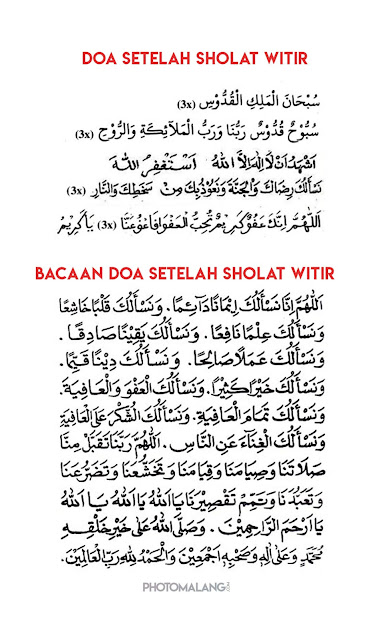 DOA SETELAH SHOLAT WITIR
سُبْحَانَ الْمَلِكِ الْقُدُّوْسِ (3x)
سُبُّوْحٌ قُدُّوْسٌ رَبُّنَا وَرَبُّ الْمَلَآئِكَةِ وَالرُّوْحِ (3x)
اَشْهَدُ اَنْ لَا اِلٰهَ اِلَّا اللهُ اَسْتَغْفِرُ اللهَ
نَسْأَلُكَ رِضَاكَ وَالْجَنَّةَ وَنَعُوْذُبِكَ مِنْ سَخَطِكَ وَالنَّارِ (3x)
اَللّٰهُمَّ اِنَّكَ عَفُوٌّ كَرِيْمٌ تُحِبُّ الْعَفْوَ فَاعْفُ عَنَّا (3x) يَاكَرِيْمُ
BACAAN DOA SETELAH SHOLAT WITIR
اَللّٰهُمَّ اِنَّا نَسْأَلُكَ اِيْمَانًا دَآئِمًا. وَنَسْأَلُكَ قَلْبًا خَاشِعًا
وَنَسْأَلُكَ عِلْمًا نَافِعًا. وَنَسْأَلُكَ يَقِيْنًا صَادِقًا.
وَنَسْأَلُكَ عَمَلًا صَالِحًا. وَنَسْأَلُكَ دِيْنًا قَيِّمًا.
وَنَسْأَلُكَ خَيْرًا كَثِيْرًا. وَنَسْأَلُكَ الْعَفْوَ وَالْعَافِيَةَ.
وَنَسْأَلُكَ تَمَامَ الْعَافِيَةِ. وَنَسْأَلُكَ الشُّكْرَ عَلَى الْعَافِيَةِ
وَنَسْأَلُكَ الْغِنَآءَ عَنِ النَّاسِ. اَللّٰهُمَّ رَبَّنَا تَقَبَّلْ مِنَّا
صَلَاتَنَا وَصِيَامَنَا وَقِيَامَنَا وَتَخَشُّعَنَا وَتَضَرُّعَنَا
وَتَعَبُّدَنَا وَتَمِّمْ تَقْصِيْرَنَا يَا اَللهُ يَا اَللهُ يَا اَللهُ
يَا اَرْحَمَ الرَّاحِمِيْنَ. وَصَلَّى اللهُ عَلَى خَيْرِ خَلْقِهِ
مُحَمَّدٍ وَعَلَى اٰلِهِ وَصَحْبِهِ اَجْمَعِيْنَ وَالْحَمْدُ لِلّٰهِ رَبِّ الْعَالَمِيْنَ.
PHOTOMALANG